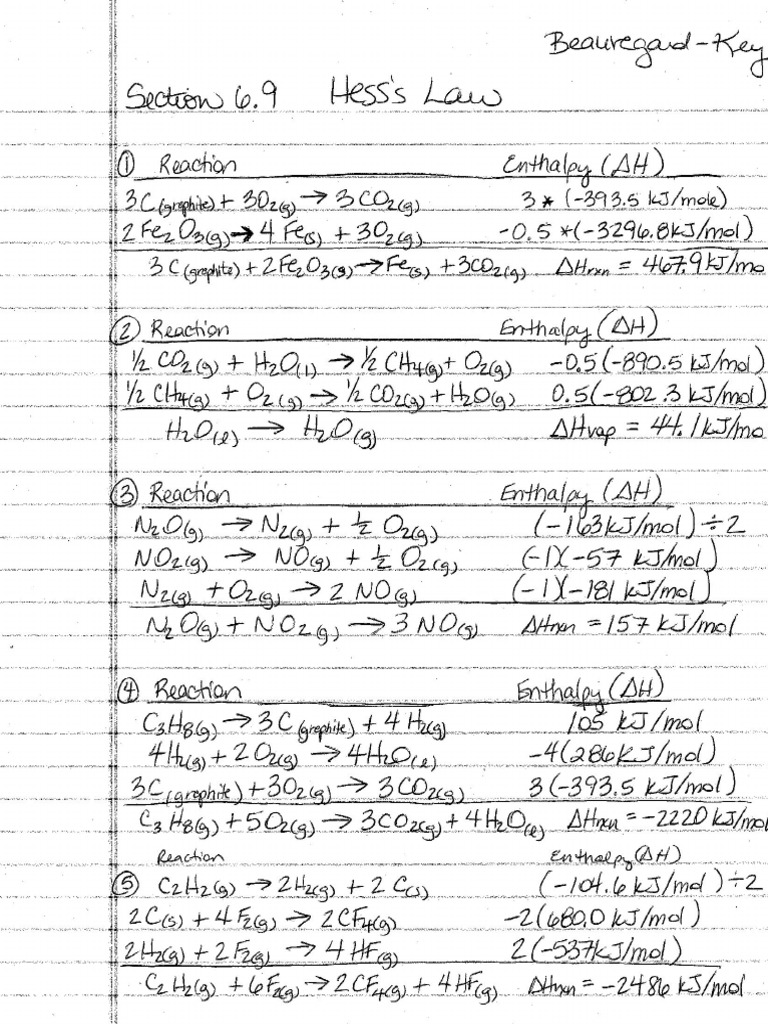 Beauregard - Key
Section 6.9 Hess's Law
① Reaction Enthalpy (ΔH)
3C(graphite) + 3O₂(g) → 3CO₂(g) 3 * (-393.5 kJ/mole)
2Fe₂O₃(g) → 4Fe(s) + 3O₂(g) -0.5 * (-3296.8kJ/mol)
3C(graphite) + 2Fe₂O₃(s) → Fe(s) + 3CO₂(g) ΔHrxn = 467.9 kJ/mo
② Reaction Enthalpy (ΔH)
½ CO₂(g) + H₂O(l) → ½ CH₄(g) + O₂(g) -0.5(-890.5 kJ/mol)
½ CH₄(g) + O₂(g) → ½ CO₂(g) + H₂O(g) 0.5(-802.3 kJ/mol)
H₂O(l) → H₂O(g) ΔHvap = 44.1 kJ/mo
③ Reaction Enthalpy (ΔH)
N₂O(g) → N₂(g) + ½ O₂(g) (-163 kJ/mol) ÷ 2
NO₂(g) → NO(g) + ½ O₂(g) (-1)(-57 kJ/mol)
N₂(g) + O₂(g) → 2 NO(g) (-1)(-181 kJ/mol)
N₂O(g) + NO₂(g) → 3 NO(g) ΔHrxn = 157 kJ/mol
④ Reaction Enthalpy (ΔH)
C₃H₈(g) → 3C(graphite) + 4H₂(g) 105 kJ/mol
4H₂(g) + 2O₂(g) → 4H₂O(l) -4(286kJ/mol)
3C(graphite) + 3O₂(g) → 3CO₂(g) 3(-393.5 kJ/mol)
C₃H₈(g) + 5O₂(g) → 3CO₂(g) + 4H₂O(l) ΔHrxn = -2220 kJ/mol
Reaction Enthalpy (ΔH)
⑤ C₂H₂(g) → 2H₂(g) + 2C(s) (-104.6 kJ/mol) ÷ 2
2C(s) + 4F₂(g) → 2CF₄(g) -2(680.0 kJ/mol)
2H₂(g) + 2F₂(g) → 4HF(g) 2(-537kJ/mol)
C₂H₂(g) + 6F₂(g) → 2CF₄(g) + 4HF(g) ΔHrxn = -2486 kJ/mol